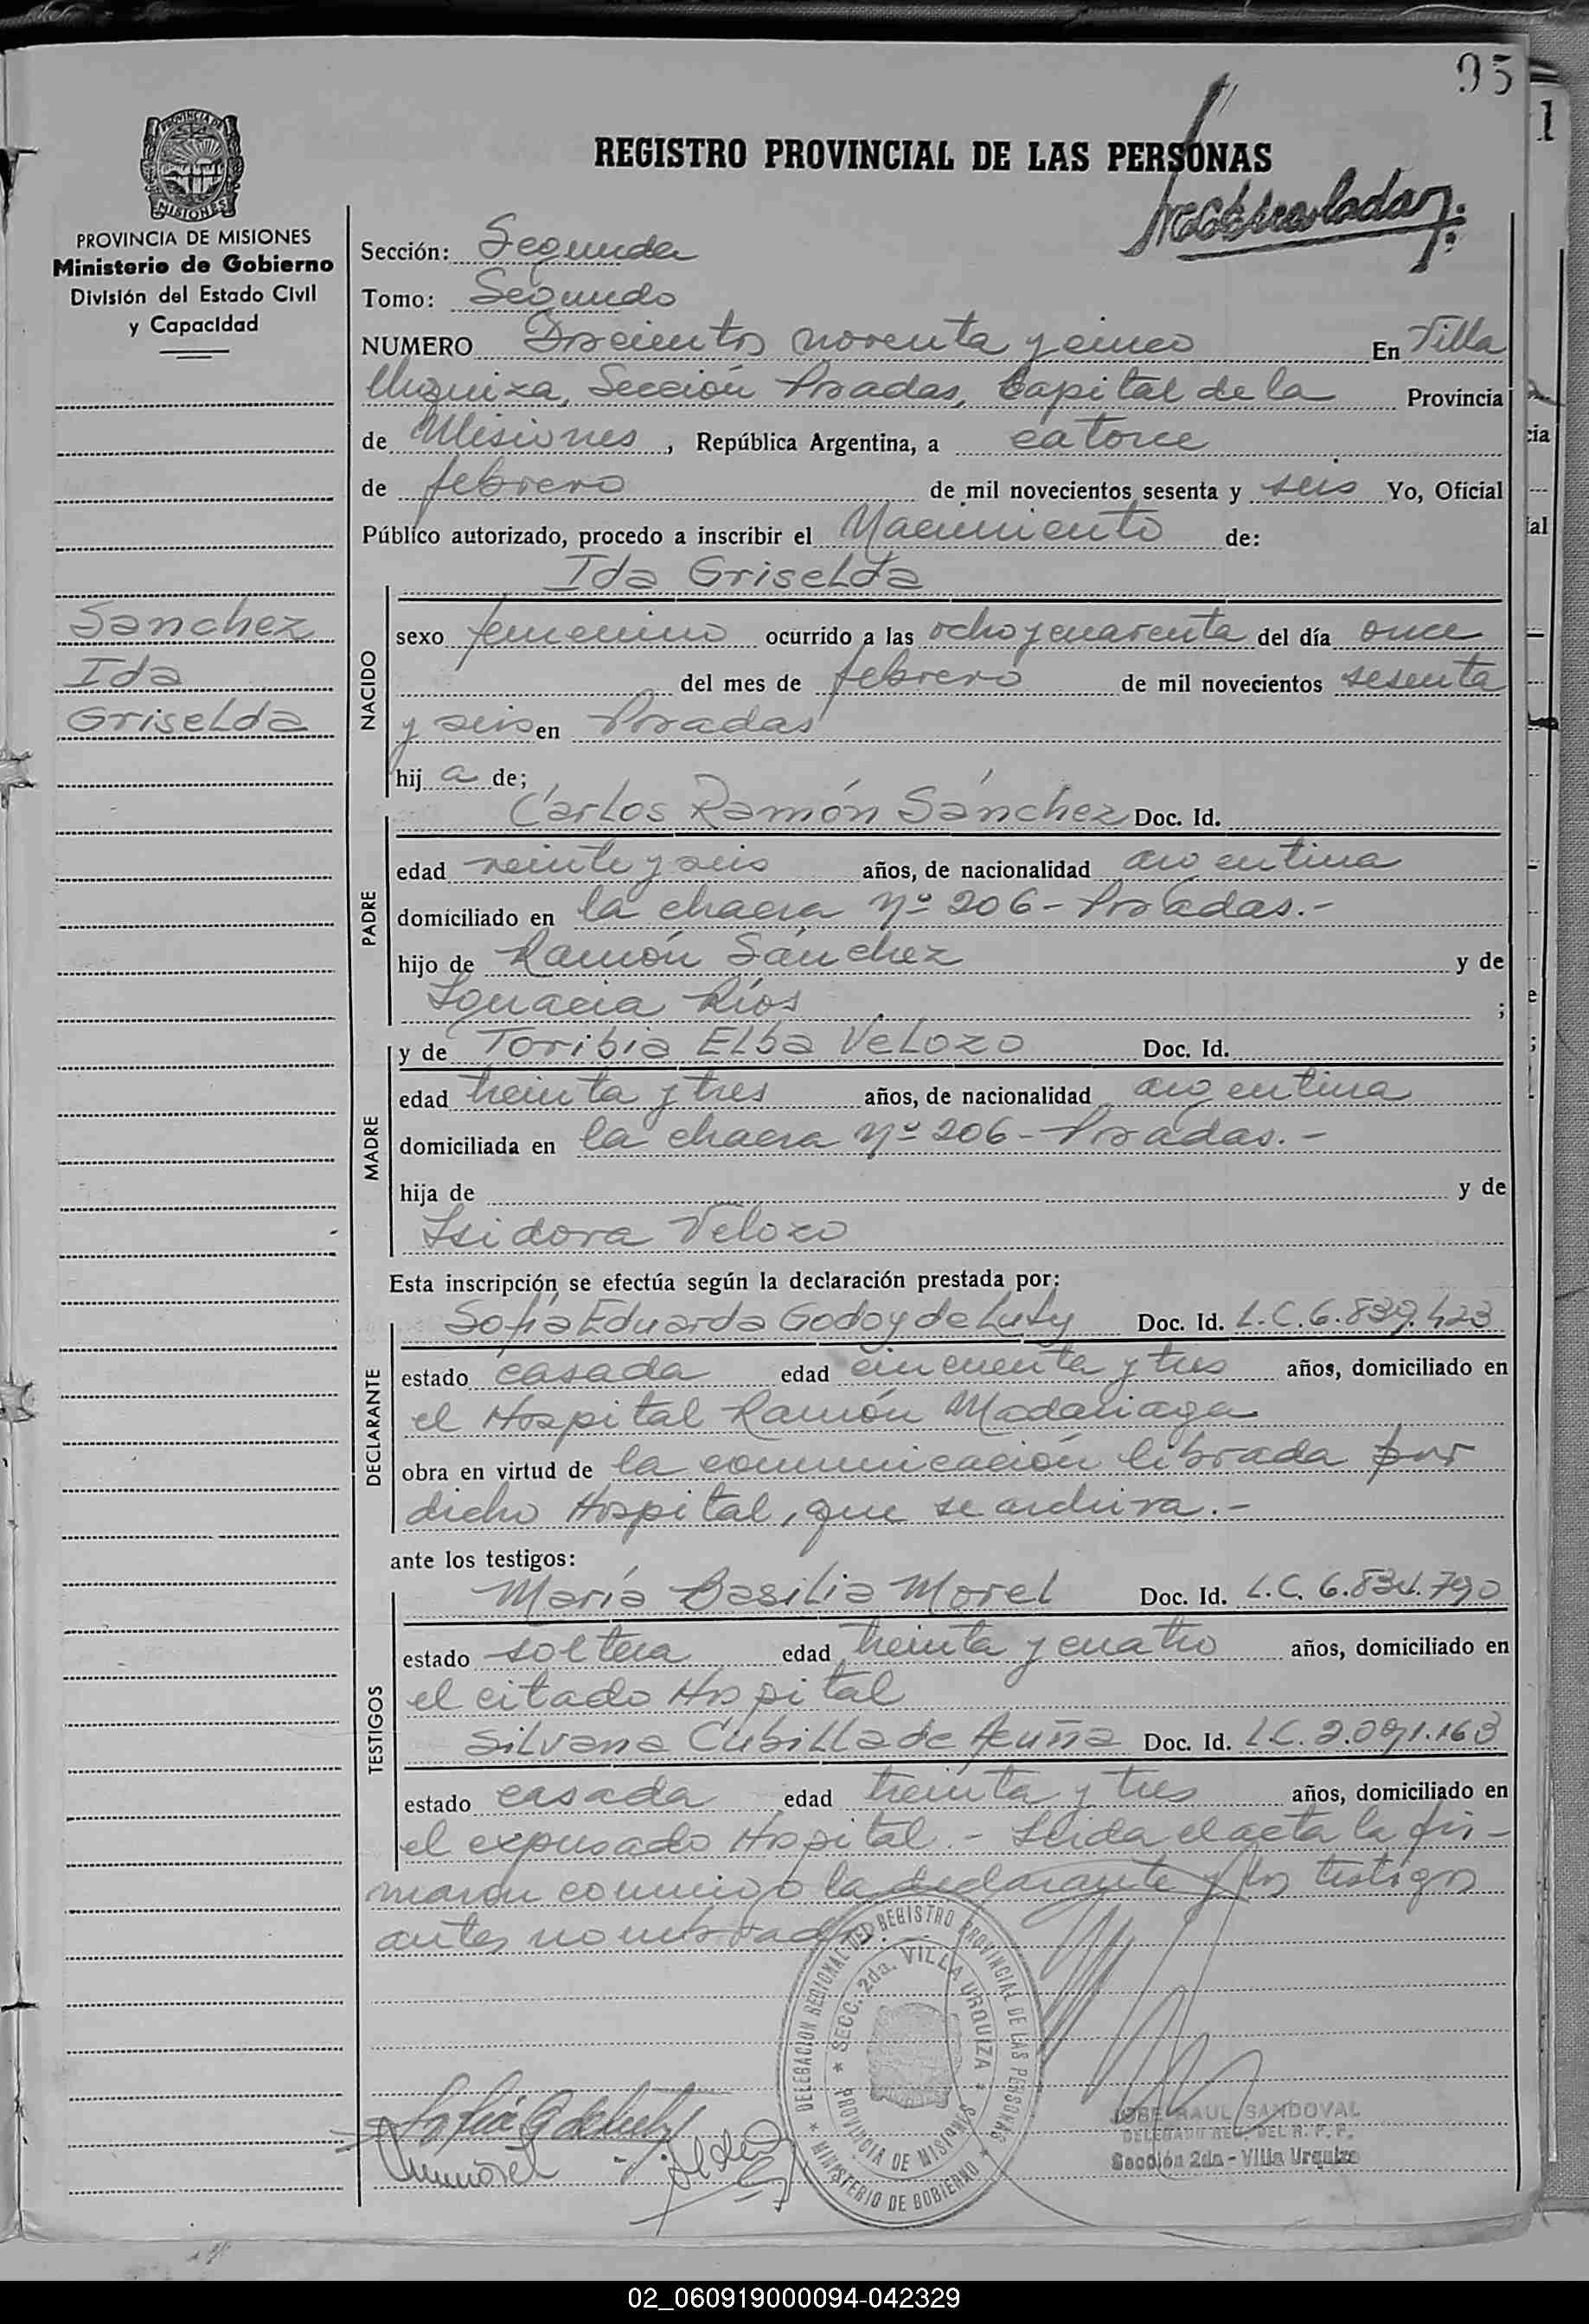 95
1
REGISTRO PROVINCIAL DE LAS PERSONAS
PROVINCIA DE MISIONES
Ministerio de Gobierno
División del Estado Civil
y Capacidad
Sección: Segunda
Tomo: Segundo
NUMERO Doscientos noventa y cinco En Villa
Urquiza, Sección Posadas, Capital de la Provincia
de Misiones, República Argentina, a catorce
de febrero de mil novecientos sesenta y seis Yo, Oficial
Público autorizado, procedo a inscribir el Nacimiento de:
Ida Griselda
Sanchez
Ida
Griselda
NACIDO
sexo femenino ocurrido a las ocho y cuarenta del día once
del mes de febrero de mil novecientos sesenta
y seis en Posadas
hij a de;
PADRE
Carlos Ramón Sánchez Doc. Id.
edad veinte y seis años, de nacionalidad argentina
domiciliado en la chacra Nº 206 - Posadas.-
hijo de Ramón Sánchez y de
Ignacia Ríos ;
MADRE
y de Toribia Elba Velozo Doc. Id.
edad treinta y tres años, de nacionalidad argentina
domiciliada en la chacra Nº 206 - Posadas.-
hija de y de
Isidora Velozo
Esta inscripción se efectúa según la declaración prestada por:
DECLARANTE
Sofía Eduarda Godoy de Doc. Id. L.C. 6.839.423
estado casada edad cincuenta y tres años, domiciliado en
el Hospital Ramón Madariaga
obra en virtud de la comunicación librada por
dicho Hospital, que se archiva.-
ante los testigos:
TESTIGOS
María Basilia Morel Doc. Id. L.C. 6.834.790
estado soltera edad treinta y cuatro años, domiciliado en
el citado Hospital
Silvana Cubilla de Acuña Doc. Id. L.C. 2.091.163
estado casada edad treinta y tres años, domiciliado en
el expresado Hospital.- Leida el acta la fir-
maron conmigo la declarante y los testigos
antes nombrados.-
DELEGACION REGIONAL DEL REGISTRO PROVINCIAL DE LAS PERSONAS
SECC. 2da. VILLA URQUIZA
PROVINCIA DE MISIONES
MINISTERIO DE GOBIERNO
JOSE RAUL SANDOVAL
DELEGADO REG. DEL R. P. P.
Sección 2da - Villa Urquiza
02_060919000094-042329